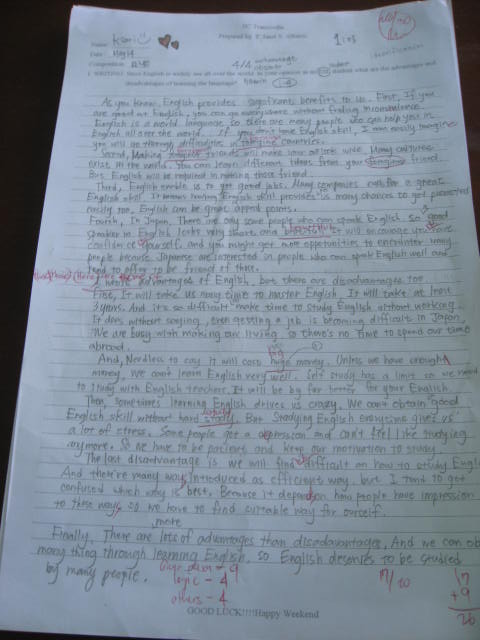 Prepared by T. Janet S.
Name: Kaori
Date: May 14
1 of 3
4/4 advantage
1. WRITING: Since English is widely use all over the world, in your opinion as student what are the advantages and
disadvantages of learning the language?
As you know, English provides significant benefits to us. First, If you
are good at English, you can go everywhere without finding inconvenience.
English is a world language, so there are many people who can help you in
English all over the world. If you don't have English skill, I can easily imagine
you will go through difficulties in foreign countries.
Second, Making foreign friends will make your outlook wide. Many cultures
exist in the world. You can learn different ideas from your foreign friend.
But English will be required in making those friend.
Third, English enable us to get good jobs. Many companies rush for a great
English skill. It means having English skill provides is many chances to get promoted
easily too. English can be great appeal points.
Fourth, In Japan, There are only some people who can speak English. So good
speaker in English looks very smart and It will encourage you have
confidence yourself. and you might get more opportunities to encounter many
people because Japanese are interested in people who can speak English well and
tend to offer to be friend of those.
I wrote advantages of English, but there are disadvantages too
First, It will take us many time to master English. It will take at least
3 years. And it's so difficult make time to study English without working.
It goes without saying, even getting a job is becoming difficult in Japan.
We are busy with making our living, so there's no time to spend our time
abroad.
And, Needless to say it will cost huge money. Unless we have enough
money, We can't learn English very well. Self study has a limit so we need
to study with English teachers. It will be by far better for your English.
Then, sometimes learning English drives us crazy. We can't obtain good
English skill without hard study. But Studying English everytime gives us
a lot of stress. Some people get a depression and can't feel like studying
anymore. So we have to be patient and keep our motivation to study.
The last disadvantage is we will find difficult on how to study English
And there're many ways introduced as efficient way. but I tend to get
confused which way is best. Because it depends on how people have impression
to those ways so we have to find suitable way for ourself.
more
Finally, There are lots of advantages than disadavantages. And we can ob
many thing through learning English, so English deserves to be studied
by many people.
logic - 4
others - 4
17/20
17
+9
26
GOOD LUCK!!!!Happy Weekend